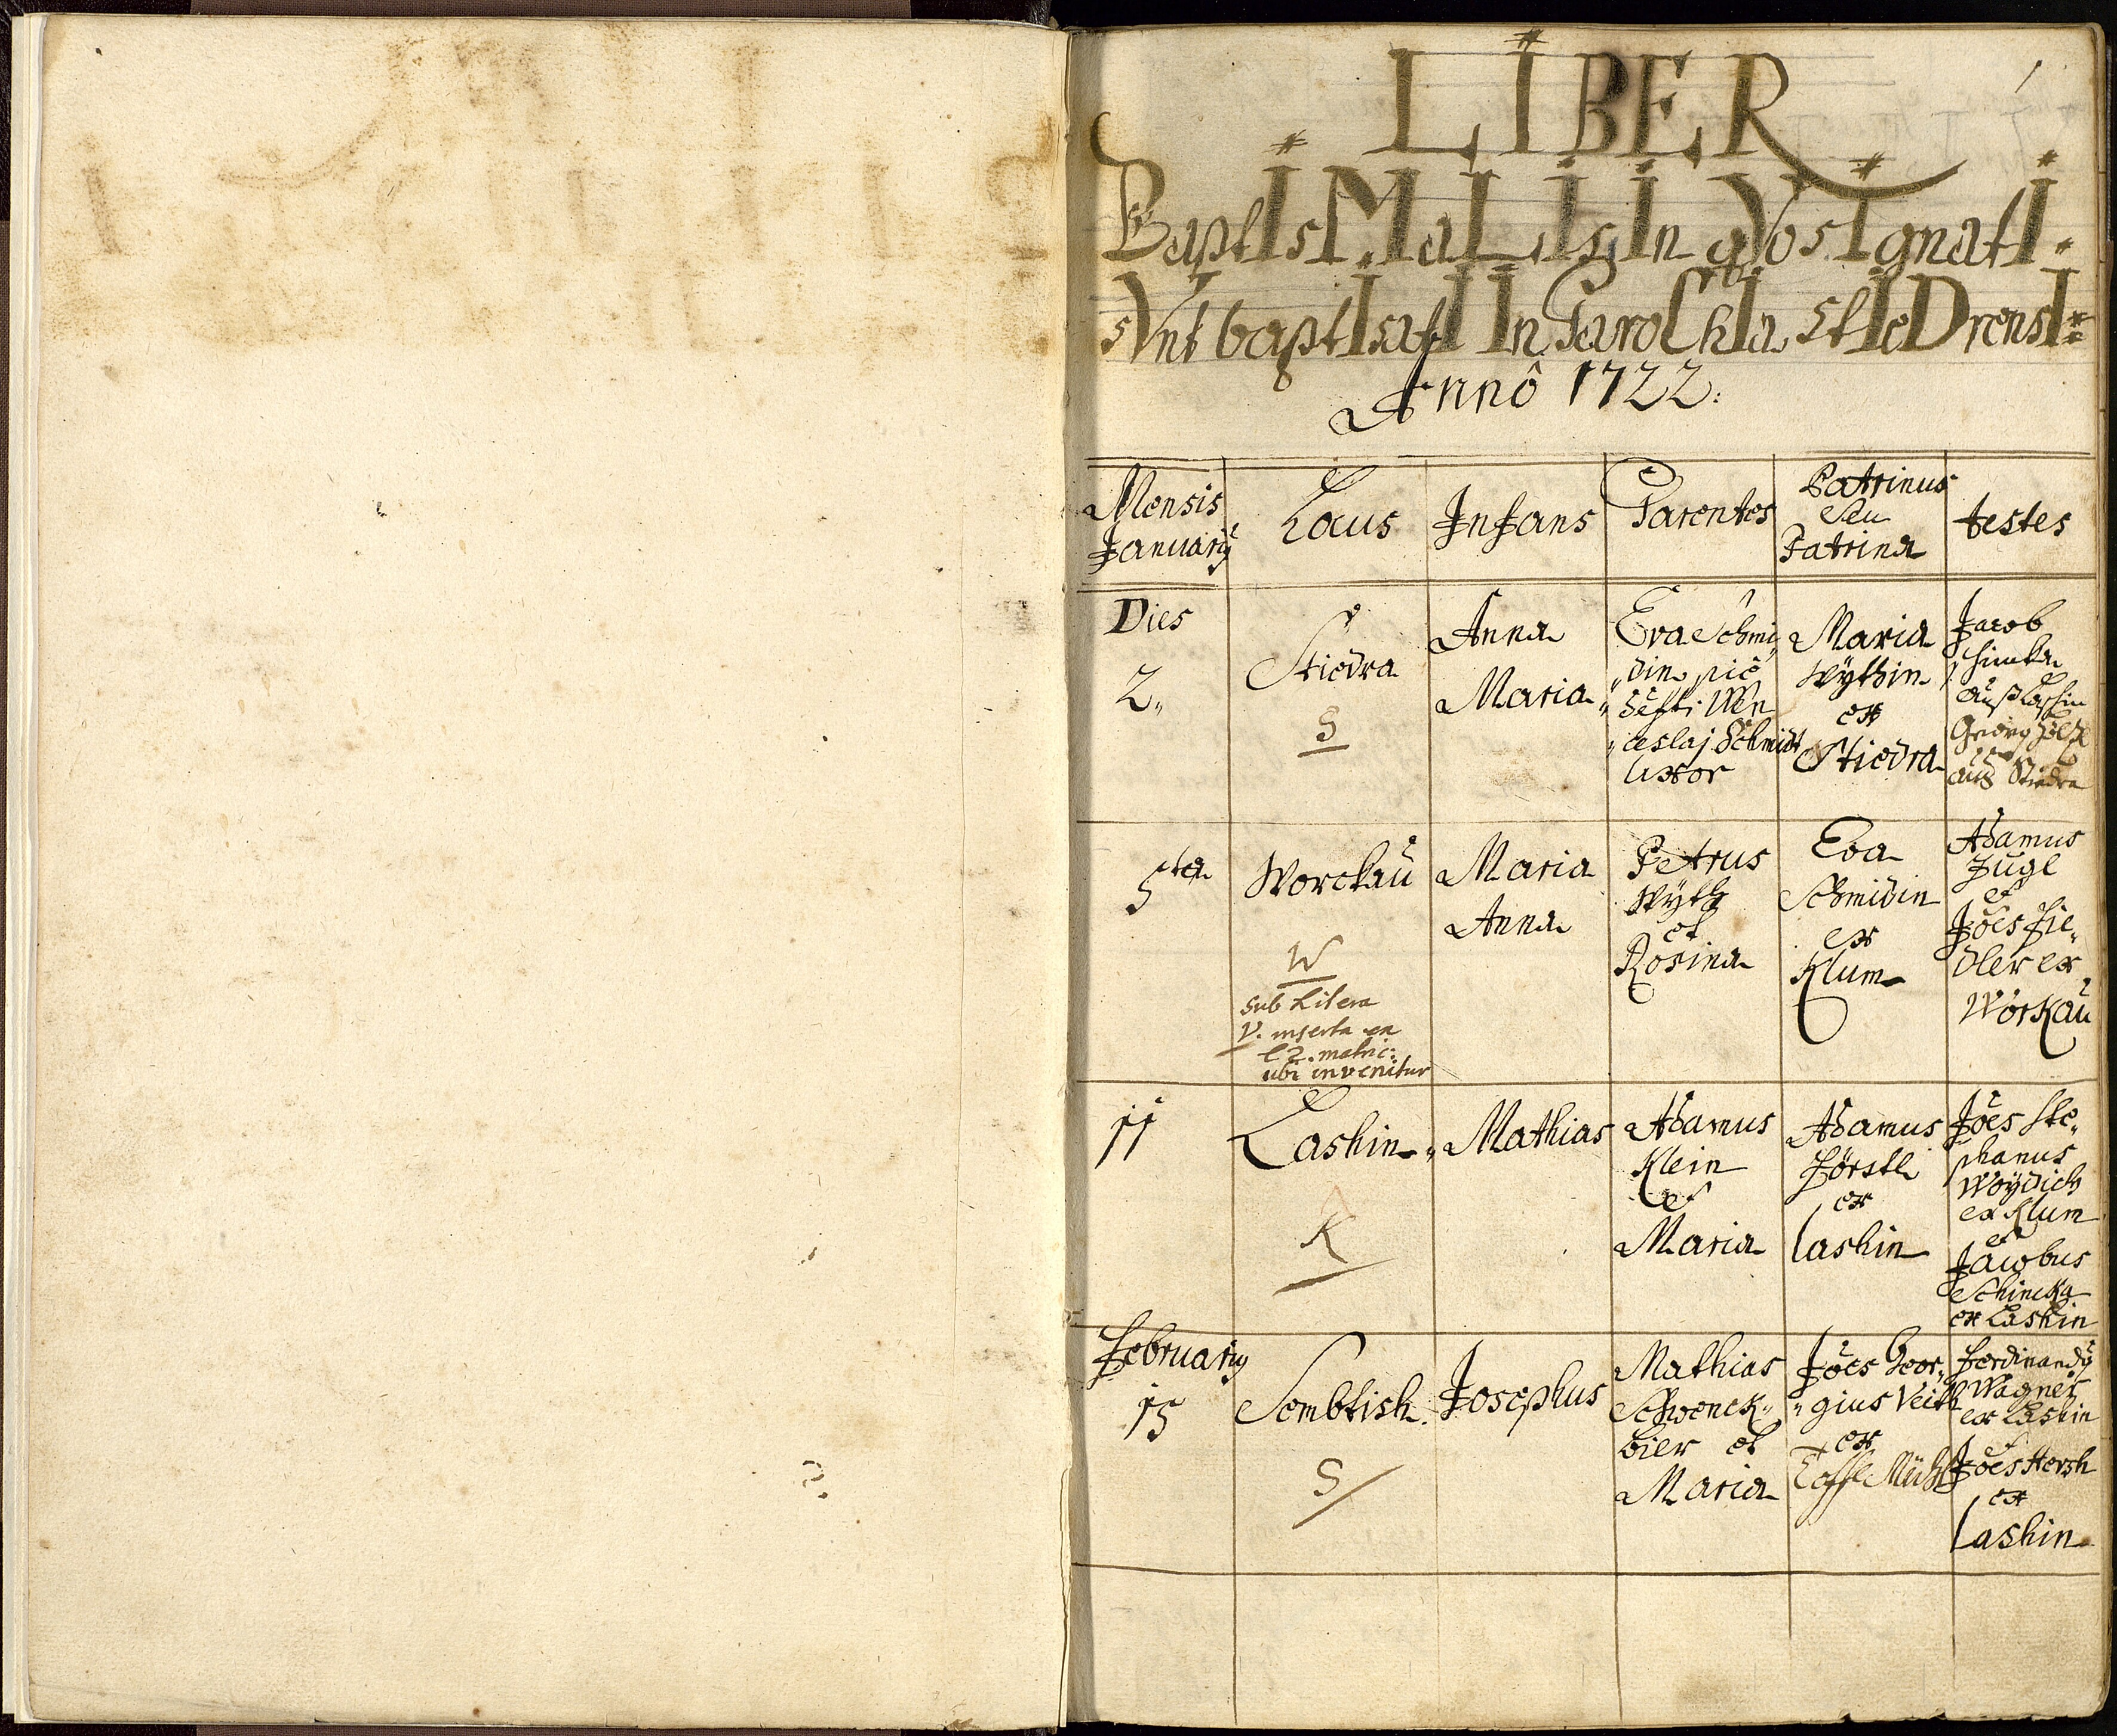 1
LIBER
BaptIsMaLIs In qVo sIgnatI
sVnt baptIsatI In ParoChIa StIeDrensI
Annô 1722.
Mensis
Januarij
Locus
Infans
Parentes
Patrinus
seu
Patrina
testes
Dies
2.
Stiedra
S
Anna
Maria
Eva Schmi„
„din piè
defti Wen
„ceslaj Schmidt
uxor
Maria
Wÿthin
ex
Stiedra
Jacob
Schimka
auß Laschin
Georg
auß Stiedra
5ta
Worckaŭ
W
sub Litera
V. inserta
matric:
ubi invenitur
Maria
Anna
Petrus
Wÿth
et
Rosina
Eva
Schmidin
ex
Klum
Adamus
Zugl
et
Jões Fie„
dler ex
Workaŭ
11
Lashin
K
Mathias
Adamus
Klein
et
Maria
Adamus
Förstl
ex
Lashin
Jões Ste„
phanus
Woÿdich
ex Klum
et
Jacobus
Schincka
ex Lashin
Februarij
15
Sembtish
S
Josephus
Mathias
Schwenck„
bier et
Maria
Jões Geor„
„gius Veith
ex
Toffl Mühl
Ferdinandq
Wagner
ex Lashin
et
Jões Hersh
ex
Lashin